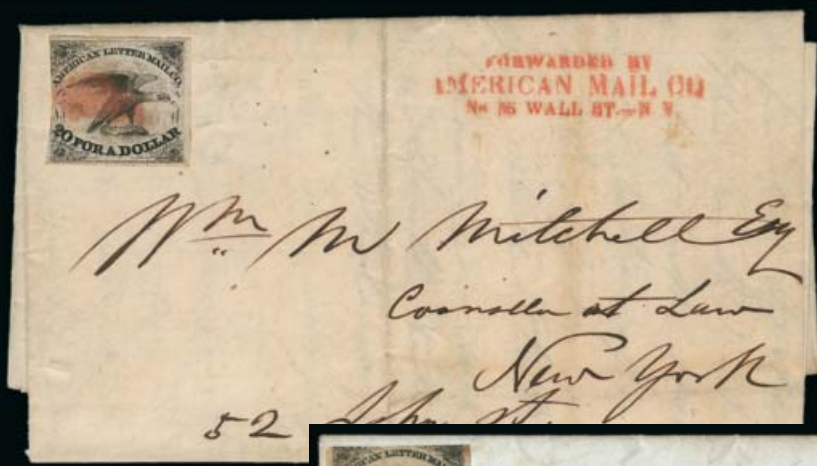 AMERICAN LETTER MAIL CO.
20 FOR A DOLLAR
FORWARDED BY
AMERICAN MAIL CO
No 56 WALL ST.—N Y.
Wm M Mitchell Esq
Counseller at Law
New York
52 John st.
AMERICAN LETTER MAIL